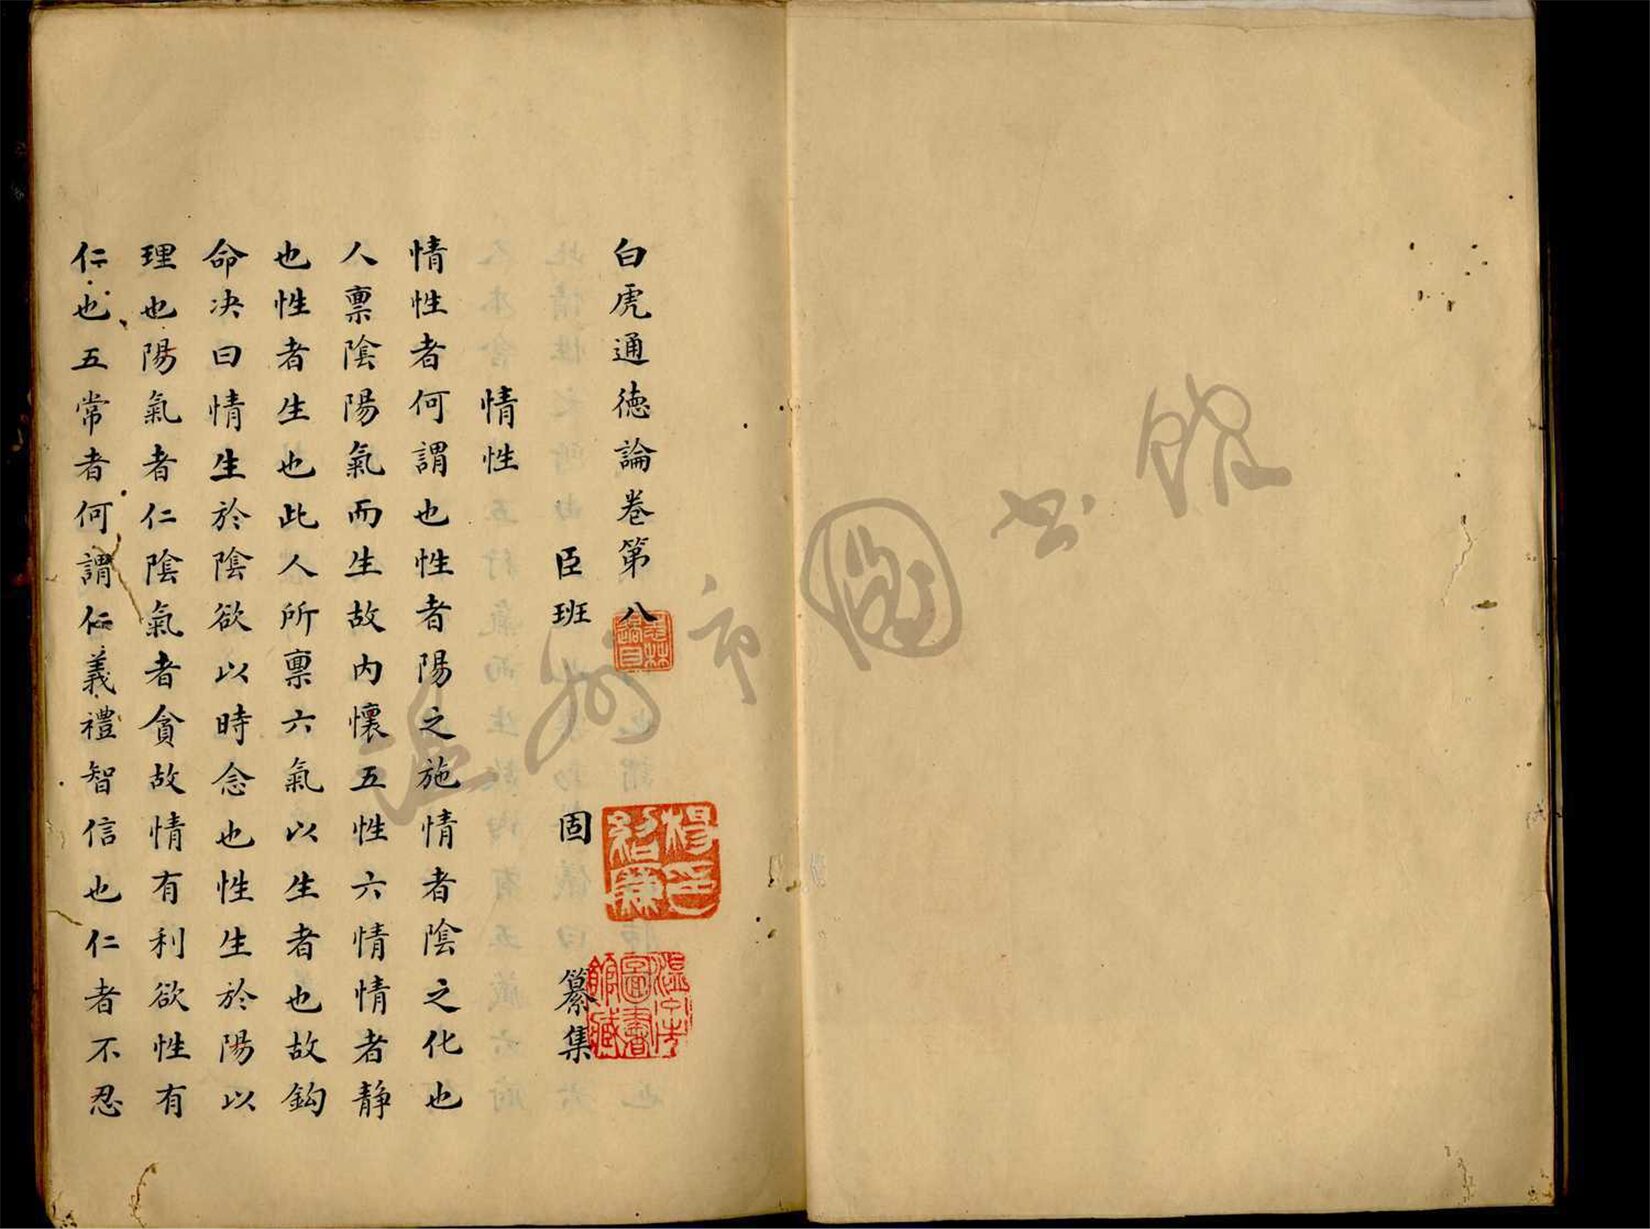 白虎通德論卷第八
臣班固纂集
情性
情性者何謂也性者陽之施情者陰之化也
人稟陰陽氣而生故内懷五性六情情者静
也性者生也此人所稟六氣以生者也故鈎
命决曰情生於陰欲以時念也性生於陽以
理也陽氣者仁陰氣者貪故情有利欲性有
仁也五常者何謂仁義禮智信也仁者不忍
楊紹廉印
溫州市圖書館藏
温州市圖书館